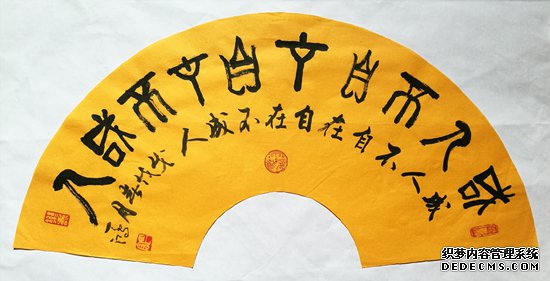 成人不自在自在不成人
成人不自在自在不成人
春月
织梦内容管理系统
DEDECMS.COM